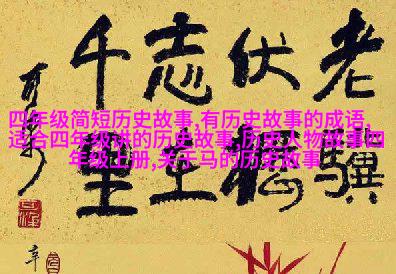 四年级简短历史故事,有历史故事的成语,
适合四年级讲的历史故事,历史人物故事四
年级上册,关于马的历史故事
老驥
伏櫪
志在
千里
辛